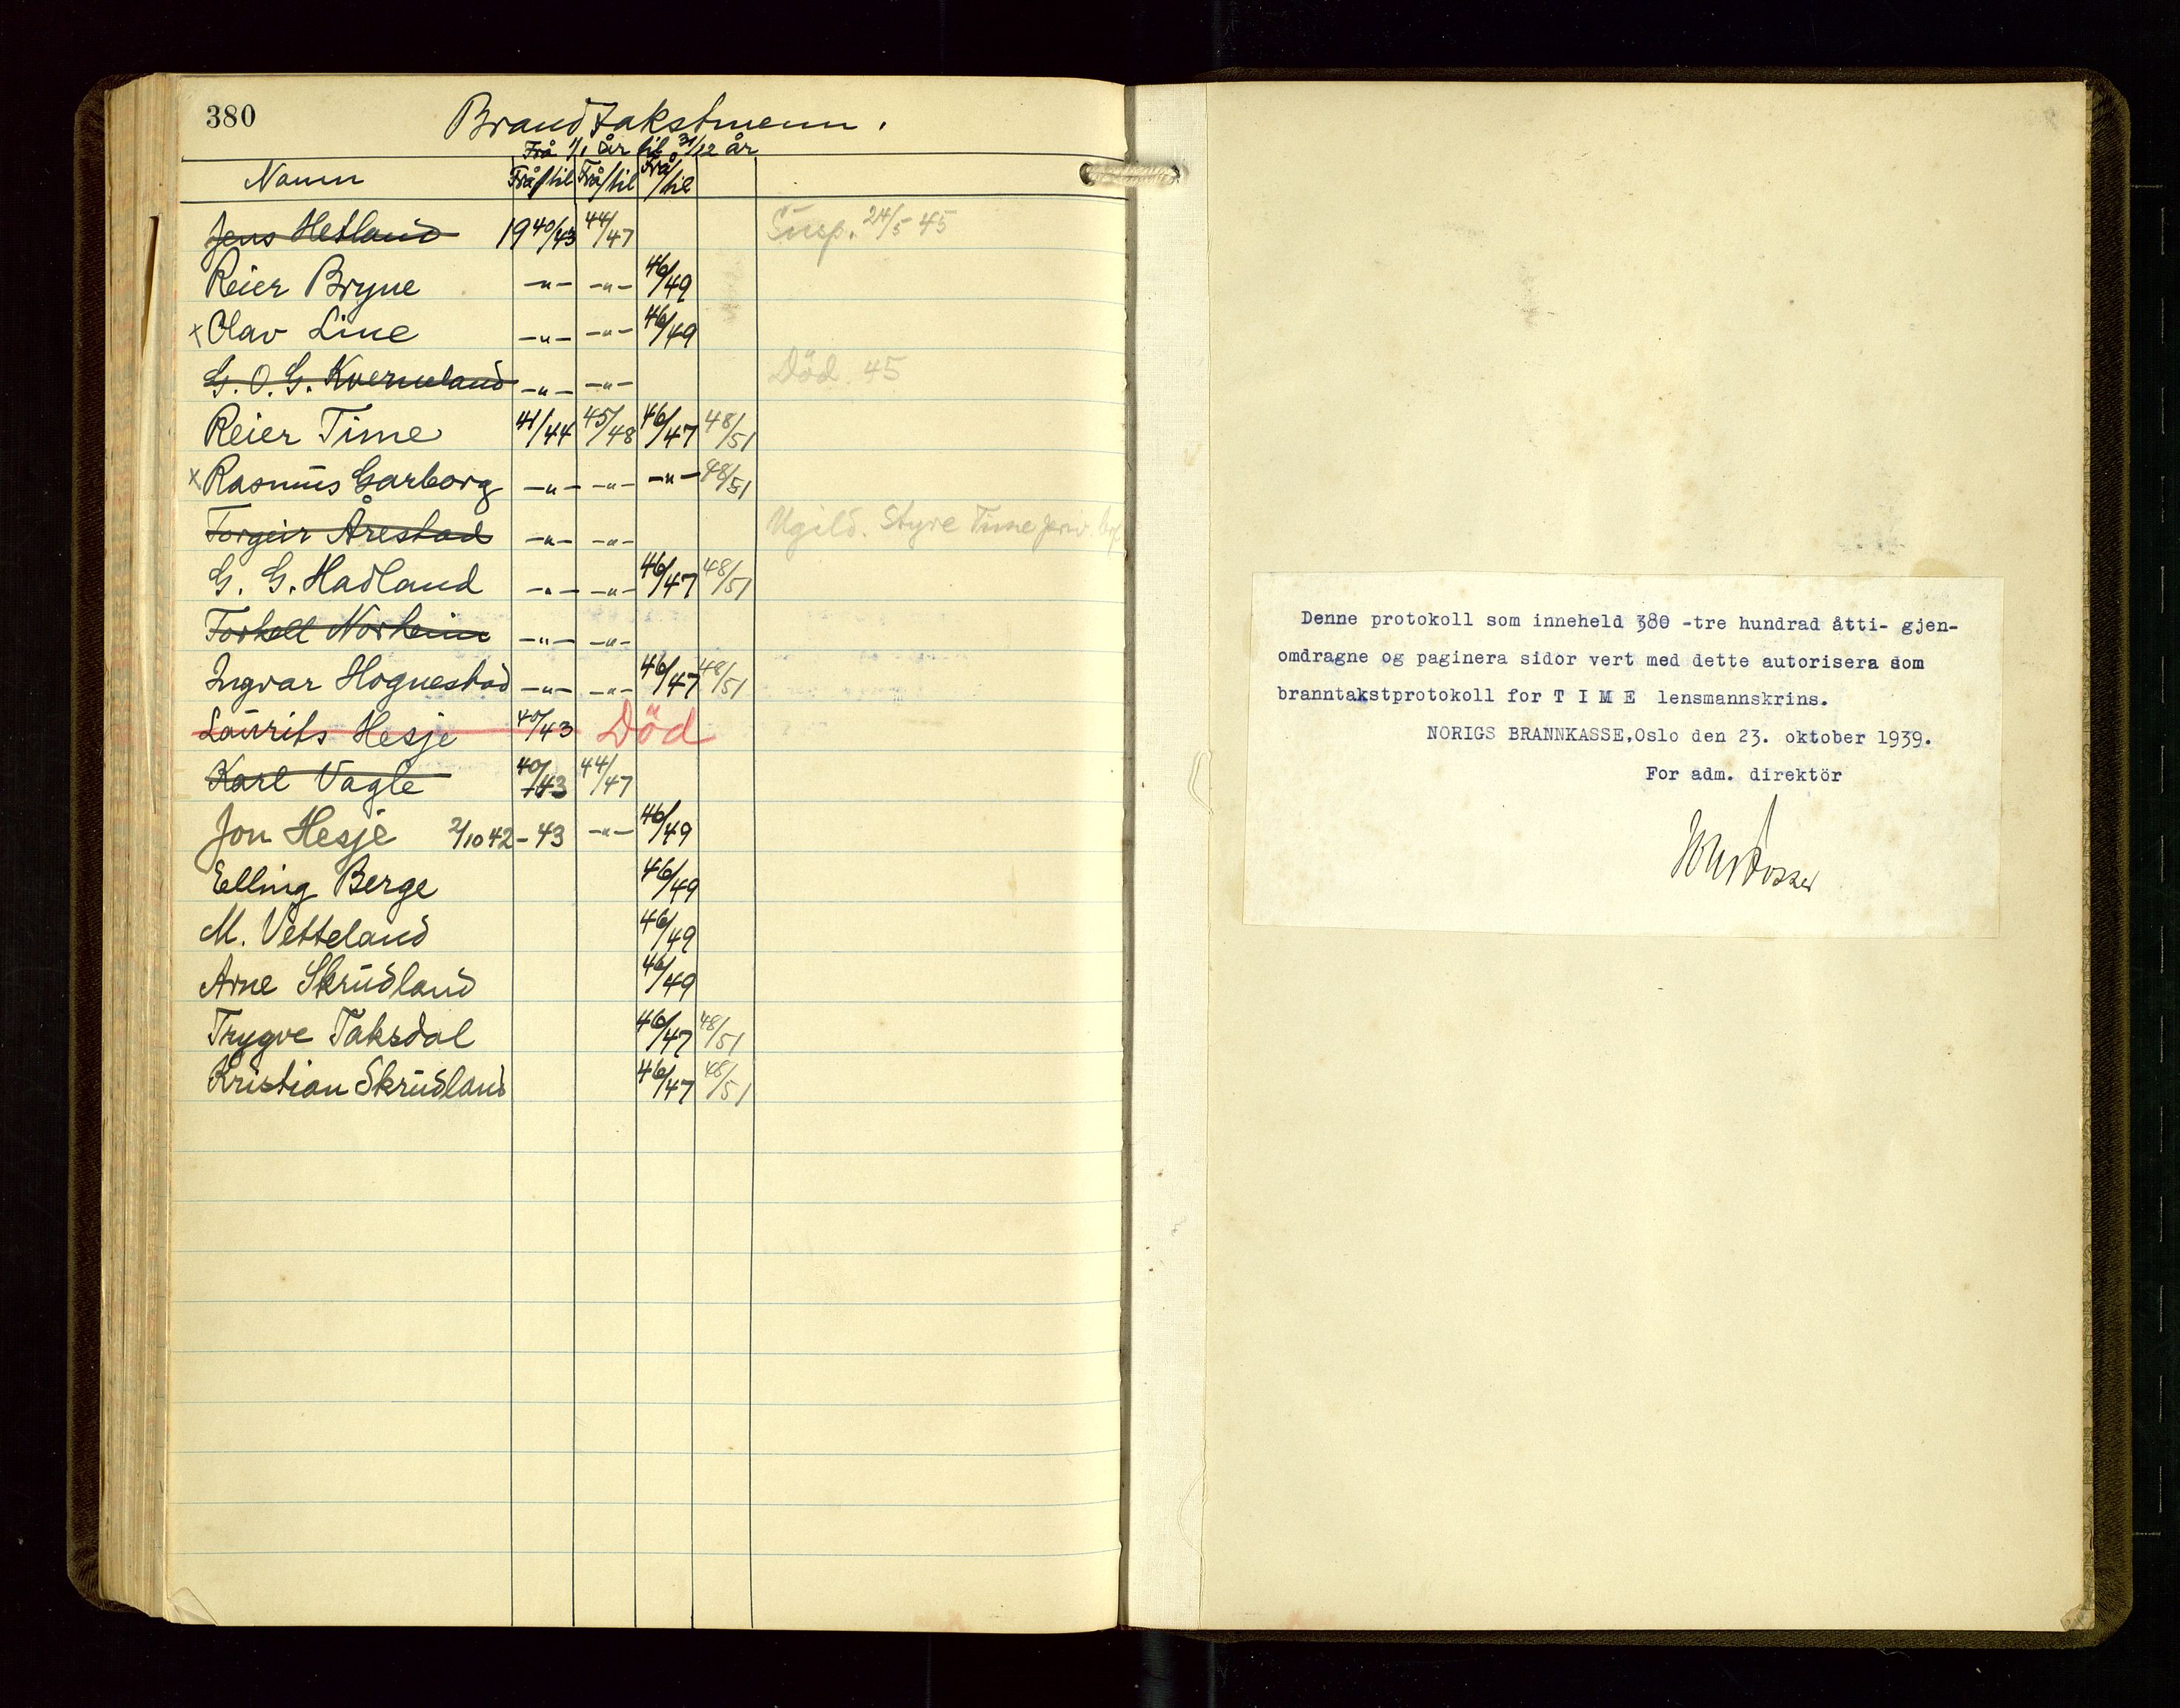 380
Brandtakstmenn.
Frå 1/1 år til 31/12 år
Namn Frå/til Frå/til Frå/til
Jens Hetland 1940/43 44/47 Susp. 24/5 45
Reier Bryne -"- -"- 46/49
x Olav Line -"- -"- 46/49
G. O. G. Kverneland -"- -"- Död 45
Reier Time 41/44 45/48 46/47 48/51
x Rasmus Garborg -"- -"- -"- 48/51
Torgeir Årestad -"- -"- Ugild. Styre Time
G. G. Hadland -"- -"- 46/47 48/51
Torkell Norheim -"- -"-
Ingvar Hognestad -"- -"- 46/47 48/51
Laurits Hesje 40/43 Död
Karl Vagle 40/43 44/47
Jon Hesje 2/10 42-43 -"- 46/49
Elling Berge 46/49
M. Vetteland 46/49
Arne Skrudland 46/49
Trygve Taksdal 46/47 48/51
Kristian Skrudland 46/47 48/51
Denne protokoll som inneheld 380 -tre hundrad åtti- gjen-
omdragne og paginera sidor vert med dette autorisera som
branntakstprotokoll for T I M E lensmannskrins.
NORIGS BRANNKASSE,Oslo den 23. oktober 1939.
For adm. direktör